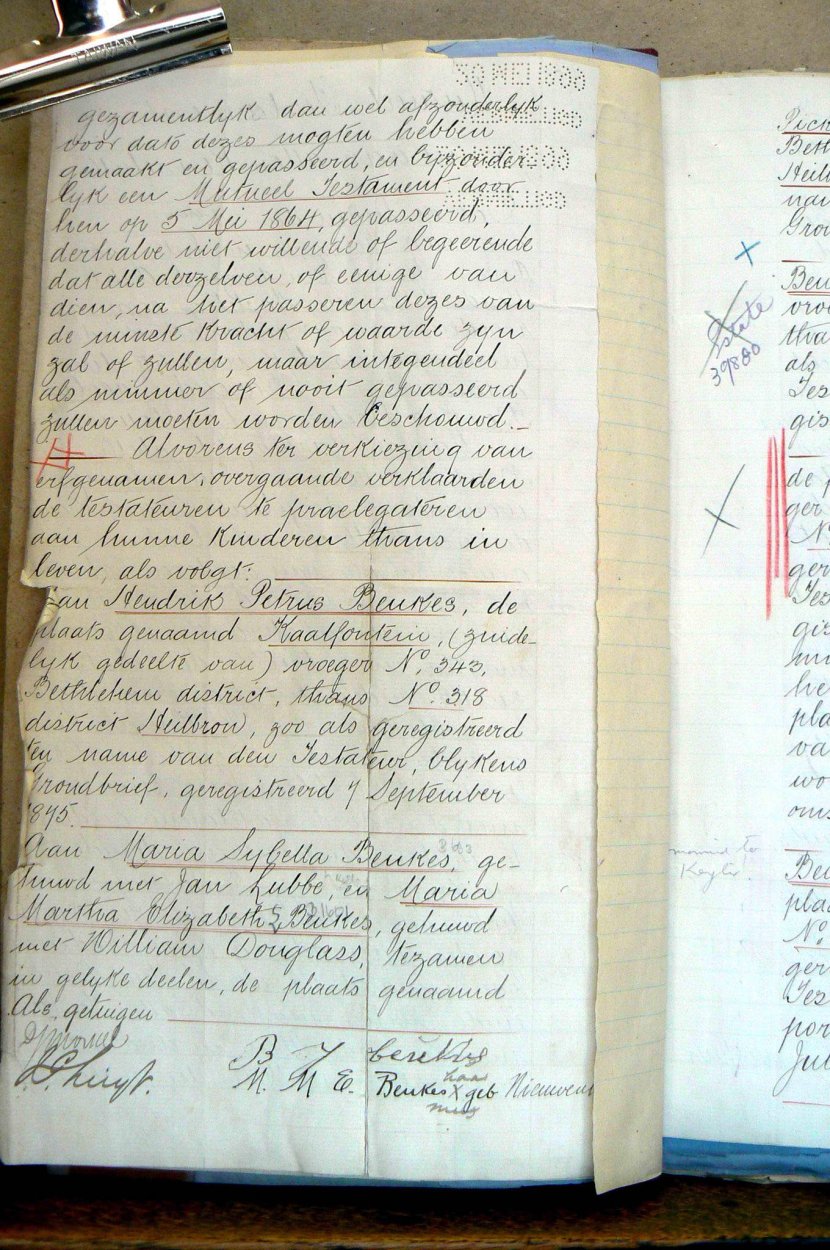 TAIWAN
30 MEI 1899
gezamentlyk dan wel afzonderlyk
voor dato dezes mogten hebben
gemaakt en gepasseerd, en byzonder-
lyk een Mutueel Testament door
hen op 5 Mei 1864, gepasseerd,
derhalve niet willende of begeerende
dat alle derzelven, of eenige van
dien, na het passeren dezes van
de minste kracht of waarde zyn
zal of zullen, maar integendeel
als nimmer of nooit gepasseerd
zullen moeten worden beschouwd._
Alvorens ter verkiezing van
erfgenamen overgaande verklaarden
de testateuren te praelegateren
aan hunne Kinderen thans in
leven, als volgt:
Aan Hendrik Petrus Beukes, de
plaats genaamd Kaalfontein, (zuide-
lyk gedeelte van) vroeger No. 343,
Bethlehem district, thans No. 318
district Heilbron, zoo als geregistreerd
ten name van den Testateur, blykens
Grondbrief, geregistreerd 7 September
1875.
Aan Maria Sybella Beukes, ge-
huwd met Jan Lubbe, en Maria
Martha Elizabeth Beukes, gehuwd
met William Douglass, tezamen
in gelyke deelen, de plaats genaamd
Als getuigen
B J
M. M E. Beukes X geb
haar
merk
X
Estate
39800
X
Heilb
No.
de p
ger
gis
pla
No.
ger